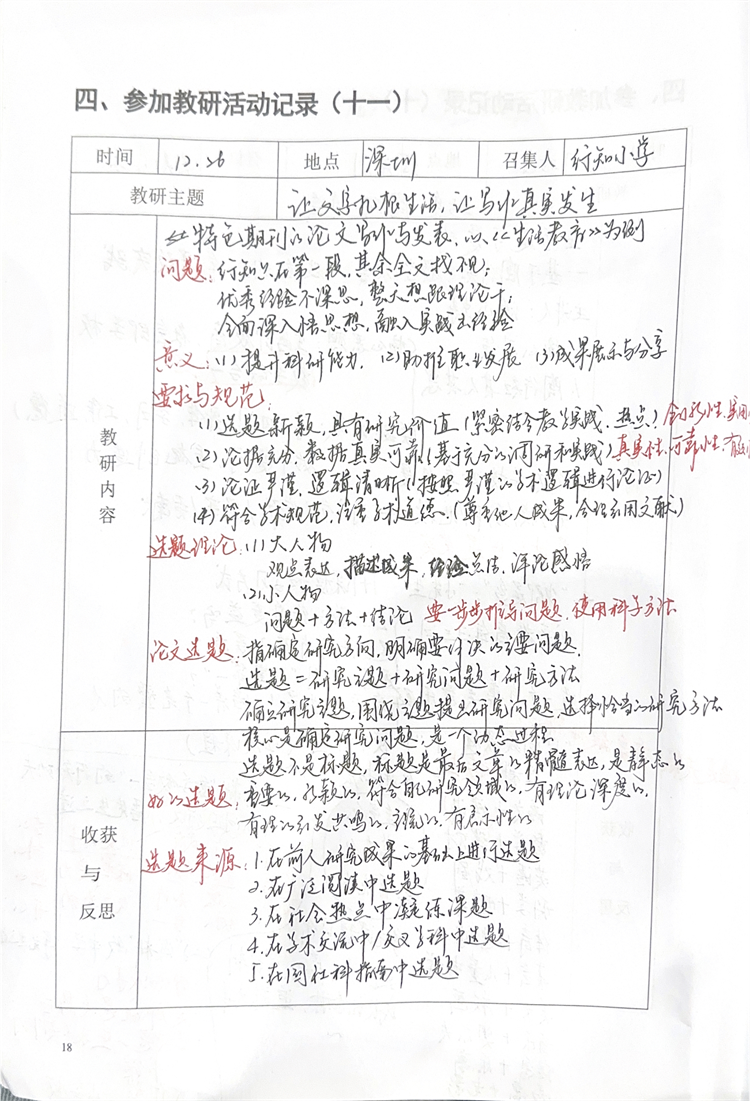 四、参加教研活动记录（十一）
时间 12.26 地点 深圳 召集人 行知小学
教研主题 让文字扎根生活，让写作真实发生
教研内容
《特色期刊的论文写作与发表，以《生活教育》为例
问题：行知只在第一段，其余全文找不见；
优秀经验不深思，整天想跟理论干；
全面深入悟思想，融入实践去经验
意义：(1)提升科研能力 (2)助推职业发展 (3)成果展示与分享
要求与规范：
(1)选题新颖，具有研究价值（紧密结合教学实践、热点）创新性、实用
(2)论据充分，数据真实可靠（基于充分的调研和实践）真实性、可靠性、有效
(3)论证严谨，逻辑清晰（按照严谨的学术逻辑进行论证）
(4)符合学术规范，注重学术道德。（尊重他人成果，合理引用文献）
选题理论：(1)大人物
观点表达，描述成果，经验总结，漫论感悟
(2)小人物
问题+方法+结论 要一步步推导问题，使用科学方法
论文选题：指确定研究方向，明确要解决的主要问题，
选题=研究主题+研究问题+研究方法
确立研究主题，围绕主题提出研究问题，选择恰当的研究方法
核心是确定研究问题，是一个动态过程
收获与反思
选题不是标题，标题是最后文章的精髓表达，是静态的
好的选题：重要的，新颖的，符合自己研究领域的，有理论深度的，
有理的引发共鸣的，主流的，有启示性的
选题来源：1.在前人研究成果的基础上进行选题
2.在广泛阅读中选题
3.在社会热点中凝练课题
4.在学术交流中/交叉学科中选题
5.在国社科指南中选题
18